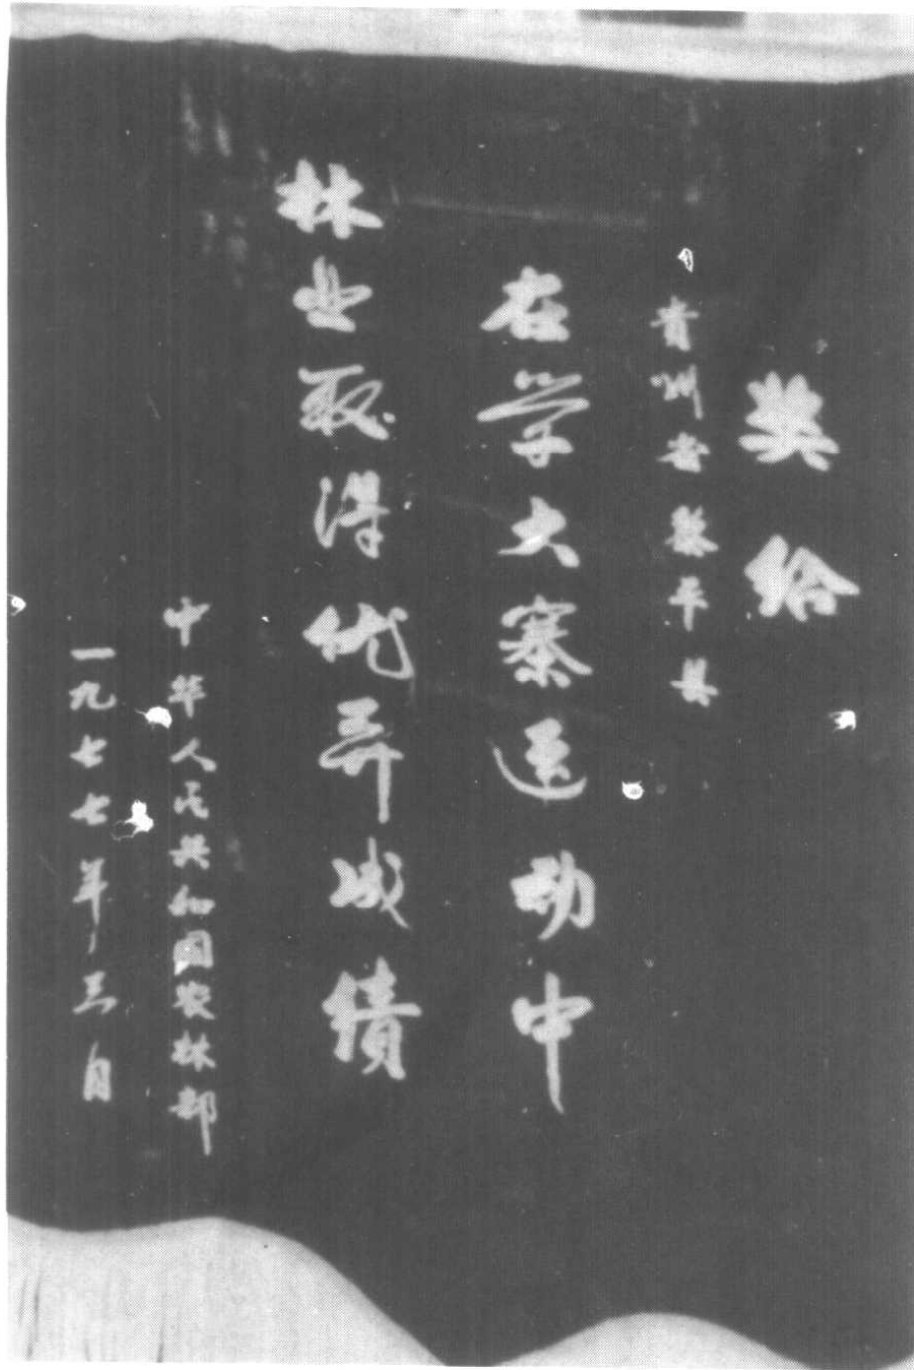 奖给
贵州省黎平县
在学大寨运动中
林业取得优异成绩
中华人民共和国农林部
一九七七年三月